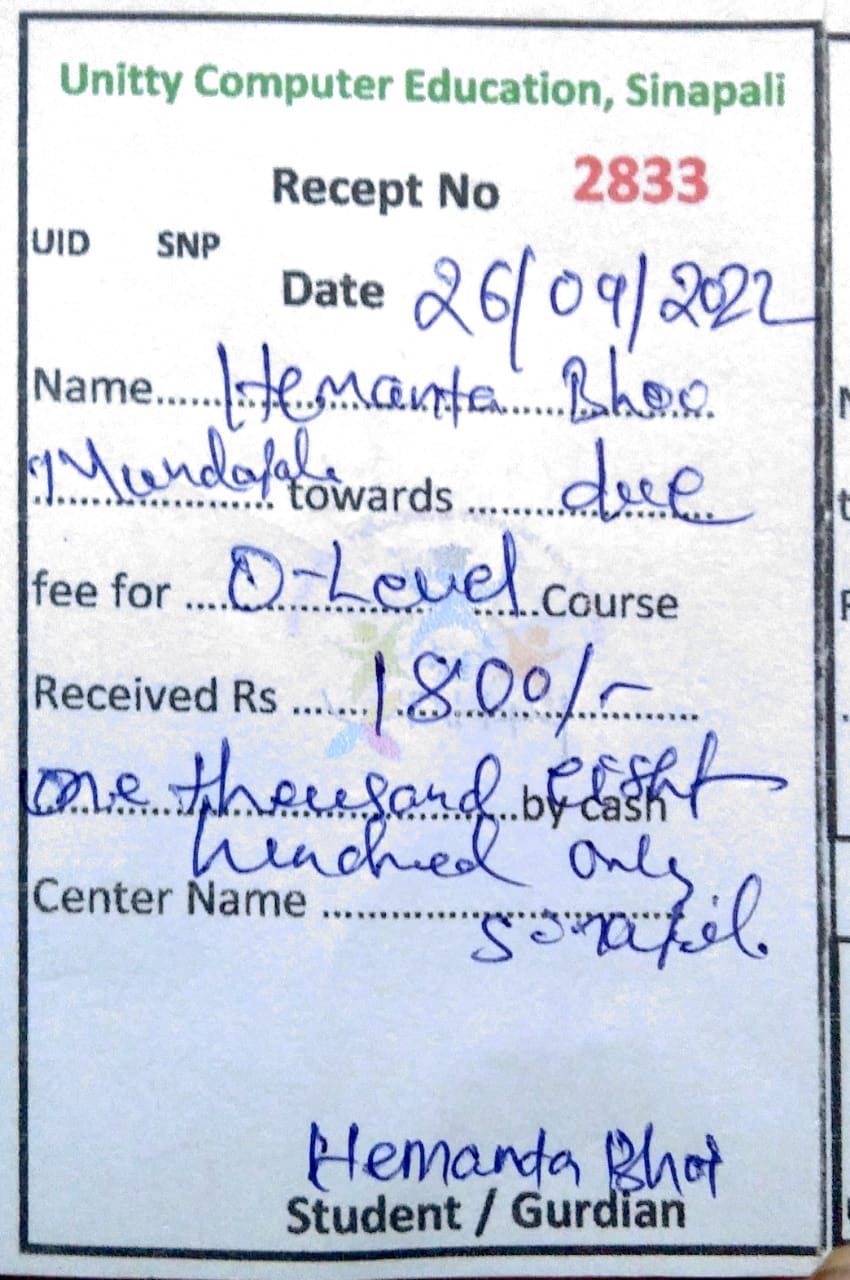 Unitty Computer Education, Sinapali
Recept No 2833
UID SNP
Date 26/09/2022
Name......Hemanta Bhoo
towards due
fee for O-Level Course
Received Rs 1800/-
one thousand eight by cash
hundred only
Center Name
Hemanta Bhoi
Student / Gurdian